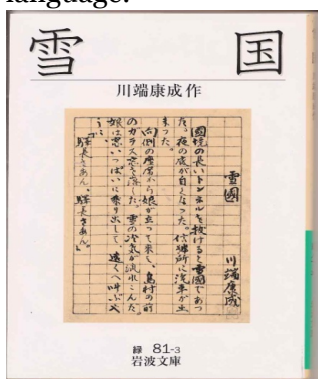 language.
雪国
川端康成作
雪國
川端康成
國境の長いトンネルを抜けると雪國であつ
た。夜の底が白くなつた。信號所に汽車が止
まつた。
向側の座席から娘が立つて来て、島村の前
のガラス窓を落した。雪の冷気が流れこんだ。
娘は窓いつぱいに乗り出して、遠くへ叫ぶや
うに、
「驛長さあん、驛長さあん。」
緑 81-3
岩波文庫